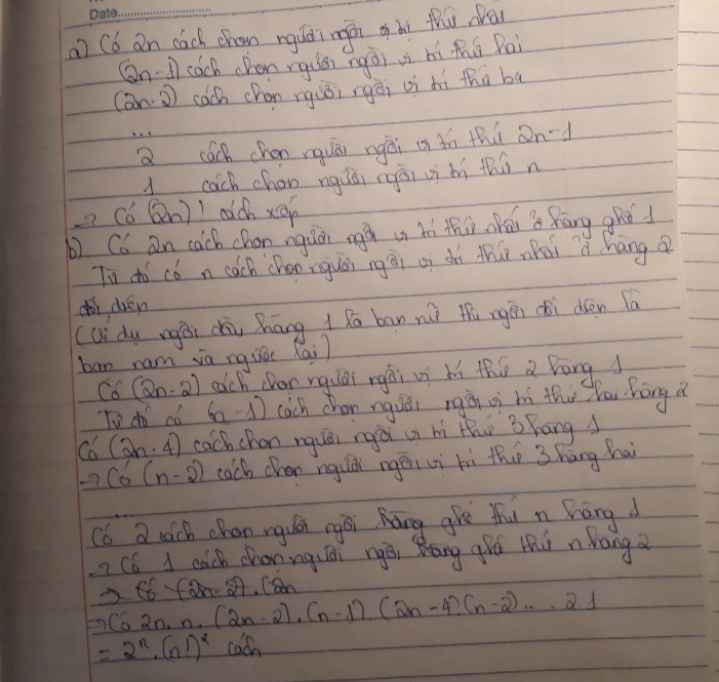 Date
a) Có 2n cách chọn người ngồi vị trí thứ nhất
(2n-1) cách chọn người ngồi vị trí thứ hai
(2n-2) cách chọn người ngồi vị trí thứ ba
...
2 cách chọn người ngồi vị trí thứ 2n-1
1 cách chọn người ngồi vị trí thứ n
→ Có (2n)! cách xếp
b) Có 2n cách chọn người ngồi vị trí thứ nhất ở hàng ghế 1
Từ đó có n cách chọn người ngồi vị trí thứ nhất ở hàng 2
đối diện
(ví dụ người đầu hàng 1 là bạn nữ thì người đối diện là
bạn nam và ngược lại)
Có (2n-2) cách chọn người ngồi vị trí thứ 2 hàng 1
Từ đó có (n-1) cách chọn người ngồi vị trí thứ hai hàng 2
Có (2n-4) cách chọn người ngồi vị trí thứ 3 hàng 1
→ Có (n-2) cách chọn người ngồi vị trí thứ 3 hàng hai
...
Có 2 cách chọn người ngồi hàng ghế thứ n hàng 1
→ Có 1 cách chọn người ngồi hàng ghế thứ n hàng 2
→ Có (2n-2).(2n
→ Có 2n.n.(2n-2).(n-1).(2n-4)(n-2)... 2.1
= 2ⁿ.(n!)² cách